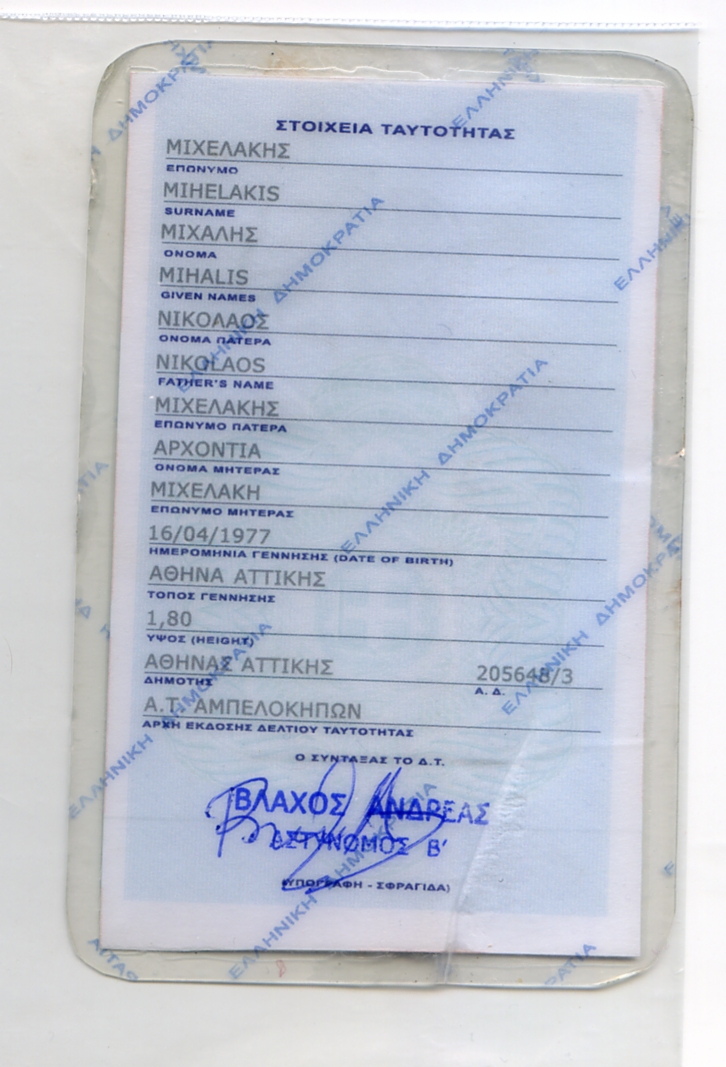 ΣΤΟΙΧΕΙΑ ΤΑΥΤΟΤΗΤΑΣ
ΜΙΧΕΛΑΚΗΣ
ΕΠΩΝΥΜΟ
MIHELAKIS
SURNAME
ΜΙΧΑΛΗΣ
ΟΝΟΜΑ
MIHALIS
GIVEN NAMES
ΝΙΚΟΛΑΟΣ
ΟΝΟΜΑ ΠΑΤΕΡΑ
NIKOLAOS
FATHER'S NAME
ΜΙΧΕΛΑΚΗΣ
ΕΠΩΝΥΜΟ ΠΑΤΕΡΑ
ΑΡΧΟΝΤΙΑ
ΟΝΟΜΑ ΜΗΤΕΡΑΣ
ΜΙΧΕΛΑΚΗ
ΕΠΩΝΥΜΟ ΜΗΤΕΡΑΣ
16/04/1977
ΗΜΕΡΟΜΗΝΙΑ ΓΕΝΝΗΣΗΣ (DATE OF BIRTH)
ΑΘΗΝΑ ΑΤΤΙΚΗΣ
ΤΟΠΟΣ ΓΕΝΝΗΣΗΣ
1,80
ΥΨΟΣ (HEIGHT)
ΑΘΗΝΑΣ ΑΤΤΙΚΗΣ 205648/3
ΔΗΜΟΤΗΣ Α.Δ.
Α.Τ. ΑΜΠΕΛΟΚΗΠΩΝ
ΑΡΧΗ ΕΚΔΟΣΗΣ ΔΕΛΤΙΟΥ ΤΑΥΤΟΤΗΤΑΣ
Ο ΣΥΝΤΑΞΑΣ ΤΟ Δ.Τ.
ΒΛΑΧΟΣ ΑΝΔΡΕΑΣ
ΑΣΤΥΝΟΜΟΣ Β'
(ΥΠΟΓΡΑΦΗ - ΣΦΡΑΓΙΔΑ)
ΕΛΛΗΝΙΚΗ ΔΗΜΟΚΡΑΤΙΑ
ΕΛΛΗΝΙΚΗ ΔΗΜΟΚΡΑΤΙΑ
ΕΛΛΗΝΙΚΗ ΔΗΜΟΚΡΑΤΙΑ
ΕΛΛΗΝΙΚΗ ΔΗΜΟΚΡΑΤΙΑ
ΕΛΛΗΝΙΚΗ ΔΗΜΟΚΡΑΤΙΑ